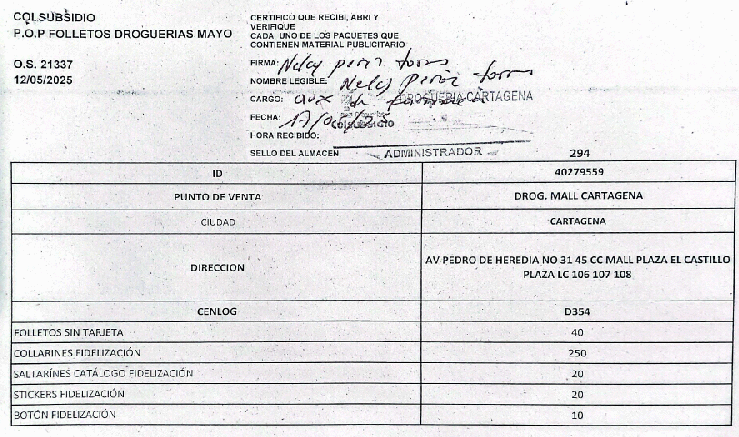 COLSUBSIDIO
P.O.P FOLLETOS DROGUERIAS MAYO
O.S. 21337
12/05/2025
CERTIFICO QUE RECIBI, ABRI Y
VERIFIQUE
CADA UNO DE LOS PAQUETES QUE
CONTIENEN MATERIAL PUBLICITARIO
FIRMA: Nelcy perez torres
NOMBRE LEGIBLE: Nelcy Perez torres
CARGO: aux de farmacia
DROGUERIA CARTAGENA
FECHA: 17/05/25
COLSUBSIDIO
HORA RECIBIDO:
SELLO DEL ALMACEN
ADMINISTRADOR
294
ID 40279559
PUNTO DE VENTA DROG. MALL CARTAGENA
CIUDAD CARTAGENA
DIRECCION AV PEDRO DE HEREDIA NO 31 45 CC MALL PLAZA EL CASTILLO
PLAZA LC 106 107 108
CENLOG D354
FOLLETOS SIN TARJETA 40
COLLARINES FIDELIZACIÓN 250
SALTARINES CATÁLOGO FIDELIZACIÓN 20
STICKERS FIDELIZACIÓN 20
BOTÓN FIDELIZACIÓN 10